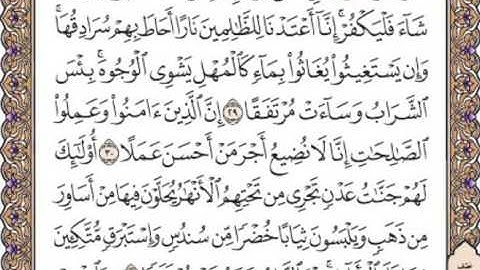 شَآءَ فَلْيَكْفُرْ ۚ إِنَّآ أَعْتَدْنَا لِلظَّٰلِمِينَ نَارًا أَحَاطَ بِهِمْ سُرَادِقُهَا ۚ
وَإِن يَسْتَغِيثُوا۟ يُغَاثُوا۟ بِمَآءٍ كَٱلْمُهْلِ يَشْوِى ٱلْوُجُوهَ ۚ بِئْسَ
ٱلشَّرَابُ وَسَآءَتْ مُرْتَفَقًا ٢٩ إِنَّ ٱلَّذِينَ ءَامَنُوا۟ وَعَمِلُوا۟
ٱلصَّٰلِحَٰتِ إِنَّا لَا نُضِيعُ أَجْرَ مَنْ أَحْسَنَ عَمَلًا ٣٠ أُو۟لَٰٓئِكَ
لَهُمْ جَنَّٰتُ عَدْنٍ تَجْرِى مِن تَحْتِهِمُ ٱلْأَنْهَٰرُ يُحَلَّوْنَ فِيهَا مِنْ أَسَاوِرَ
مِن ذَهَبٍ وَيَلْبَسُونَ ثِيَابًا خُضْرًا مِّن سُندُسٍ وَإِسْتَبْرَقٍ مُّتَّكِـِٔينَ